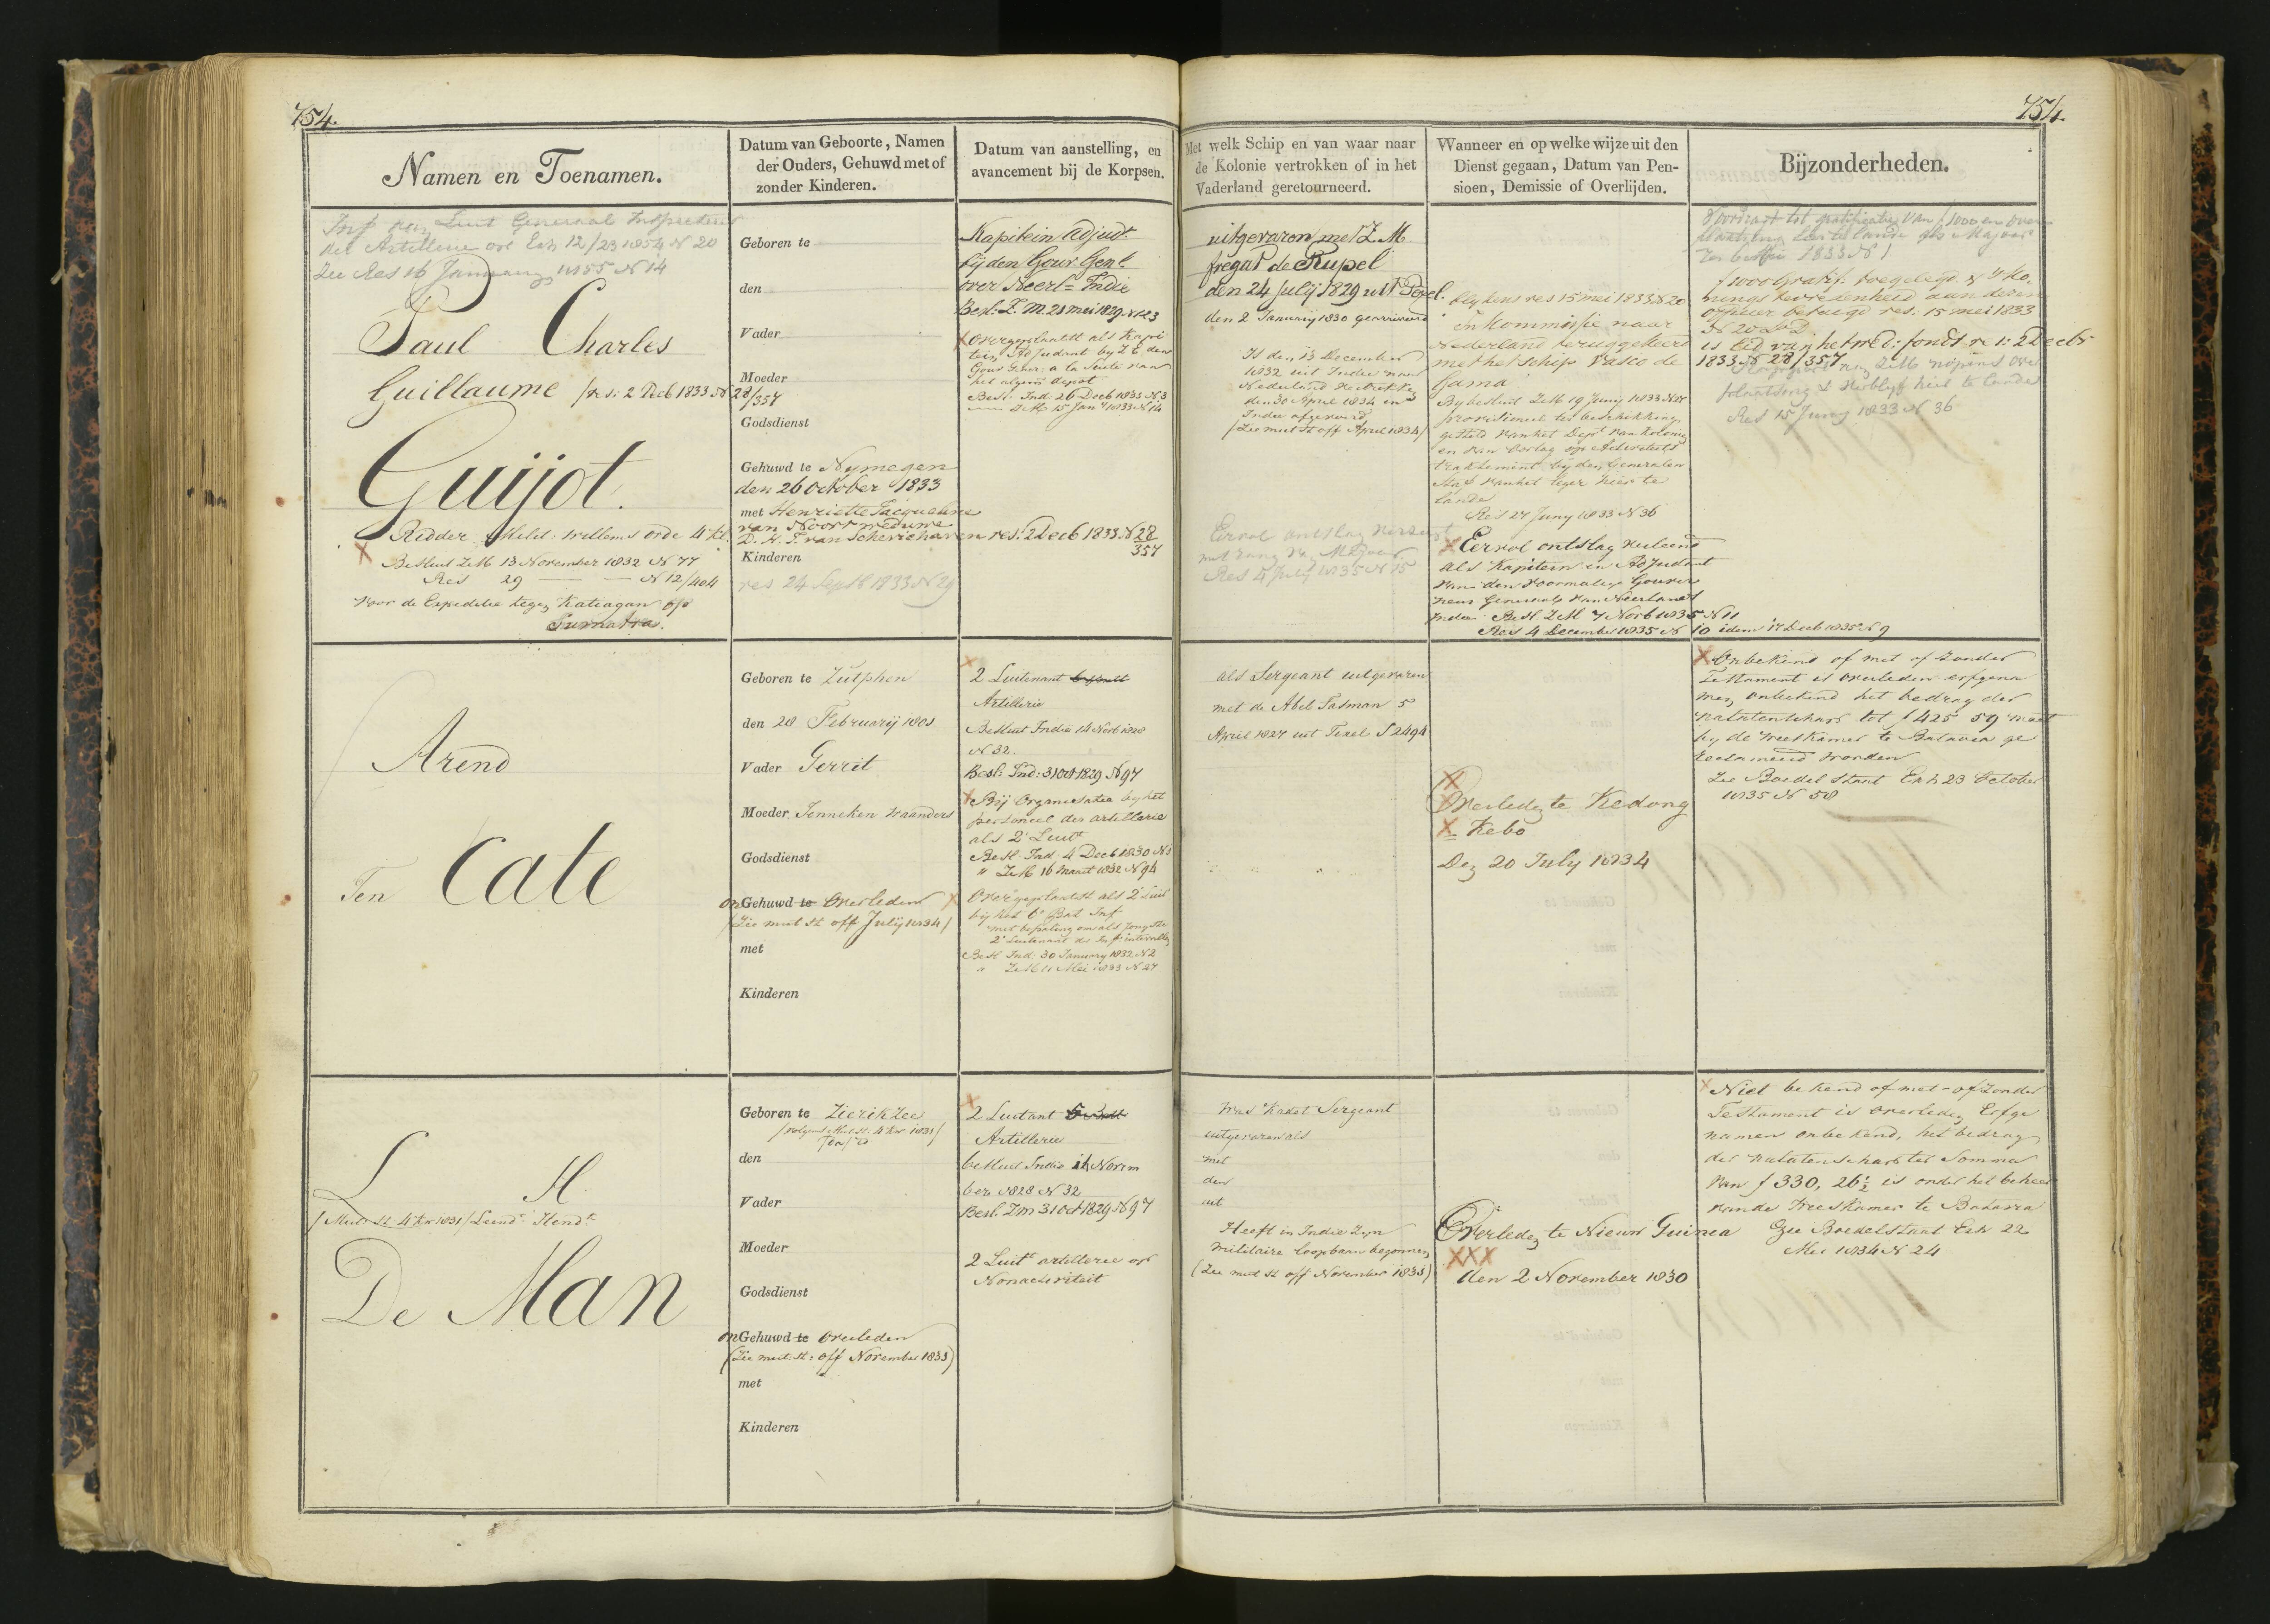 754.
754.
Namen en Toenamen.
Datum van Geboorte, Namen
der Ouders, Gehuwd met of
zonder Kinderen.
Datum van aanstelling, en
avancement bij de Korpsen.
Met welk Schip en van waar naar
de Kolonie vertrokken of in het
Vaderland geretourneerd.
Wanneer en op welke wijze uit den
Dienst gegaan, Datum van Pen-
sioen, Demissie of Overlijden.
Bijzonderheden.
Luit Generaal Inspecteur
der Artillerie Exh 12/23 1854 N 20
Zie Res 16 January 1855 N 14
Paul Charles
Guillaume /res: 2 Decb 1833 N 28/357
Guijot.
Ridder Milit: Willems orde 4e kl.
Besluit ZM 13 November 1832 N 77
Res 29 — — N 12/404
voor de Expeditie tegen Katiagan op
Sumatra.
Geboren te
den
Vader
Moeder
Godsdienst
Gehuwd te Nymegen
den 26 October 1833
met Henriette Jacqueline
van Noort weduwe
D. H. F. van Scherichaven res: 2 Decb 1833 N 28/357
Kinderen
res 24 Septb 1833 N 29
Kapitein Adjudt
bij den Gouv. Genl
over Neerl= Indie
Besl: Z. M. 28 mei 1829 N 123
Overgeplaatst als Kapi
tein Adjudant by Z E den
Gouv Gener: a la Suite van
het algem depot
Besl: Ind: 26 Decb 1833 N 3
— ZM 15 Jany 1833 N 14
uitgevaren met Z M
fregat de Rupel
den 24 July 1829 uit Texel.
den 2 January 1830 gearriveerd
Is den 13 December
1832 uit Indie naar
Nederland vertrokken
den 30 April 1834 in
Indie afgevoerd
/Zie mut st off April 1834/
Eervol ontslag verleent
met rang van Majoor
Res 4 July 1835 N 15
blykens res 15 mei 1833 N 20
in kommissie naar
Nederland teruggekeerd
met het schip Vasco de
Gama
By besluit ZM 19 Juny 1833 N 27
provisioneel ter beschikking
gesteld van het Dept van Kolonien
en van Oorlog op Activiteits
traktement by den Generalen
Staf van het leger hier te
lande
Res 27 Juny 1833 N 36
Eervol ontslag verleend
als Kapitein en Adjudant
van den voormalige Gouver
neur Generaal van Neerlands
Indie Besl ZM 7 Novb 1835 N 11
Res 4 December 1835 N 10 idem 17 Decb 1835 N 9
Voordragt tot gratificatie van f 1000 en over
plaatsing hier te lande als Majoor
1833 N 1
f 1000 Gratif: toegelegd & 's Ko-
nings tevredenheid aan dezen
officier betuigd res: 15 mei 1833
N 20 La D.
is lid van het wed: fonds re s: 2 Decbr
1833 N 28/357
plaatsing & verblyf hier te lande
Res 15 Juny 1833 N 36
Arend
Ten Cate
Geboren te Zutphen
den 28 February 1801
Vader Gerrit
Moeder Jenneken Waanders
Godsdienst
onGehuwd te Overleden
/Zie mut st off July 1834/
met
Kinderen
2 Luitenant
Artillerie
Besluit Indie 14 Novb 1828
N 32.
Besl: Ind: 31 Oct 1829 N 97
Bij Organisatie by het
personeel der artillerie
als 2e Luitt
Besl: Ind. 4 Decb 1830 N 1
" ZM 16 Maart 1832 N 94
Overgeplaatst als 2 Luit
bij het 6e Bat Inf
met bepaling om als jongste
2e Luitenant de Inf: intevallen
Besl Ind: 30 January 1832 N 2
" ZM 11 Mei 1833 N 27
als Sergeant uitgevaren
met de Abel Tasman 5
April 1827 uit Texel S 2494
Overleden te Kedong
Kebo
Den 20 July 1834
Onbekend of met of zonder
Testament is overleden erfgena
men onbekend het bedrag der
nalatenschap tot f 425 59 moet
by de Weeskamer te Batavia ge
reclameerd worden
Zie Boedel Staat Exh 23 October
1835 N 58
L H.
/Mut: st 4e kw 1831/ Leendt Hendk
De Man
Geboren te Zierikzee
/volgens Mut. st. 4e kw. 1831/
den
Vader
Moeder
Godsdienst
onGehuwd te Overleden
(Zie mut: st: off November 1833)
met
Kinderen
2 Luitant
Artillerie
besluit Indie 14 Novem
ber 1828 N 32
Besl. ZM 31 Oct 1829 N 97
2 Luitt artillerie op
Nonactiviteit
Was Kadet Sergeant
uitgevaren als
met
den
uit
Heeft in Indie zyn
militaire loopbaan begonnen
(Zie mut st off November 1833)
Overleden te Nieuw Guinea
den 2 November 1830
Niet bekend of met of zonder
Testament is overleden Erfge
namen onbekend, het bedrag
der nalatenschap ter Somma
van f 330, 26½ is onder het beheer
van de Weeskamer te Batavia
Zie Boedelstaat Exh 22
Mei 1834 N 24